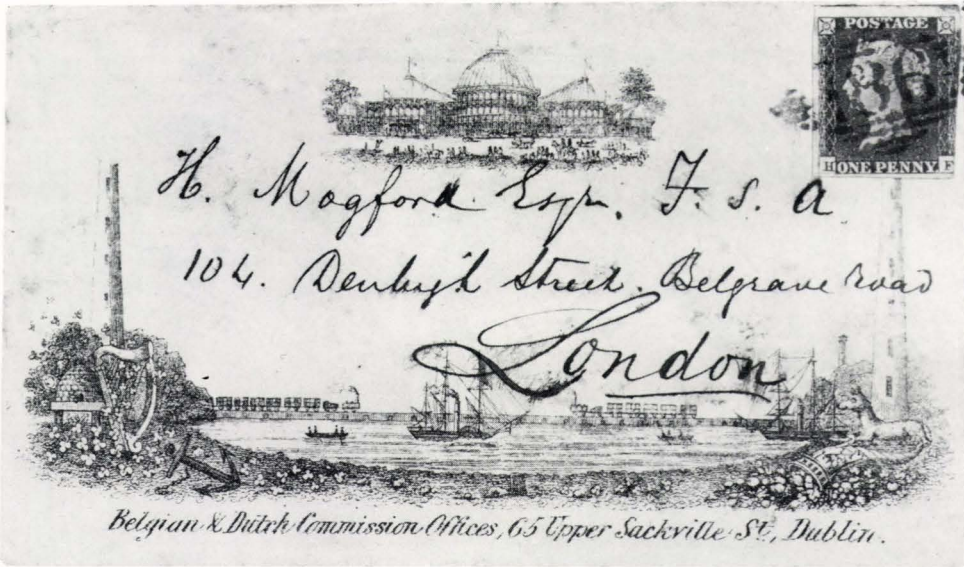 POSTAGE
H ONE PENNY E
H. Mogford Esqr. F. S. A
104. Denbigh Street. Belgrave road
London
Belgian & Dutch Commission Offices, 65 Upper Sackville St., Dublin.